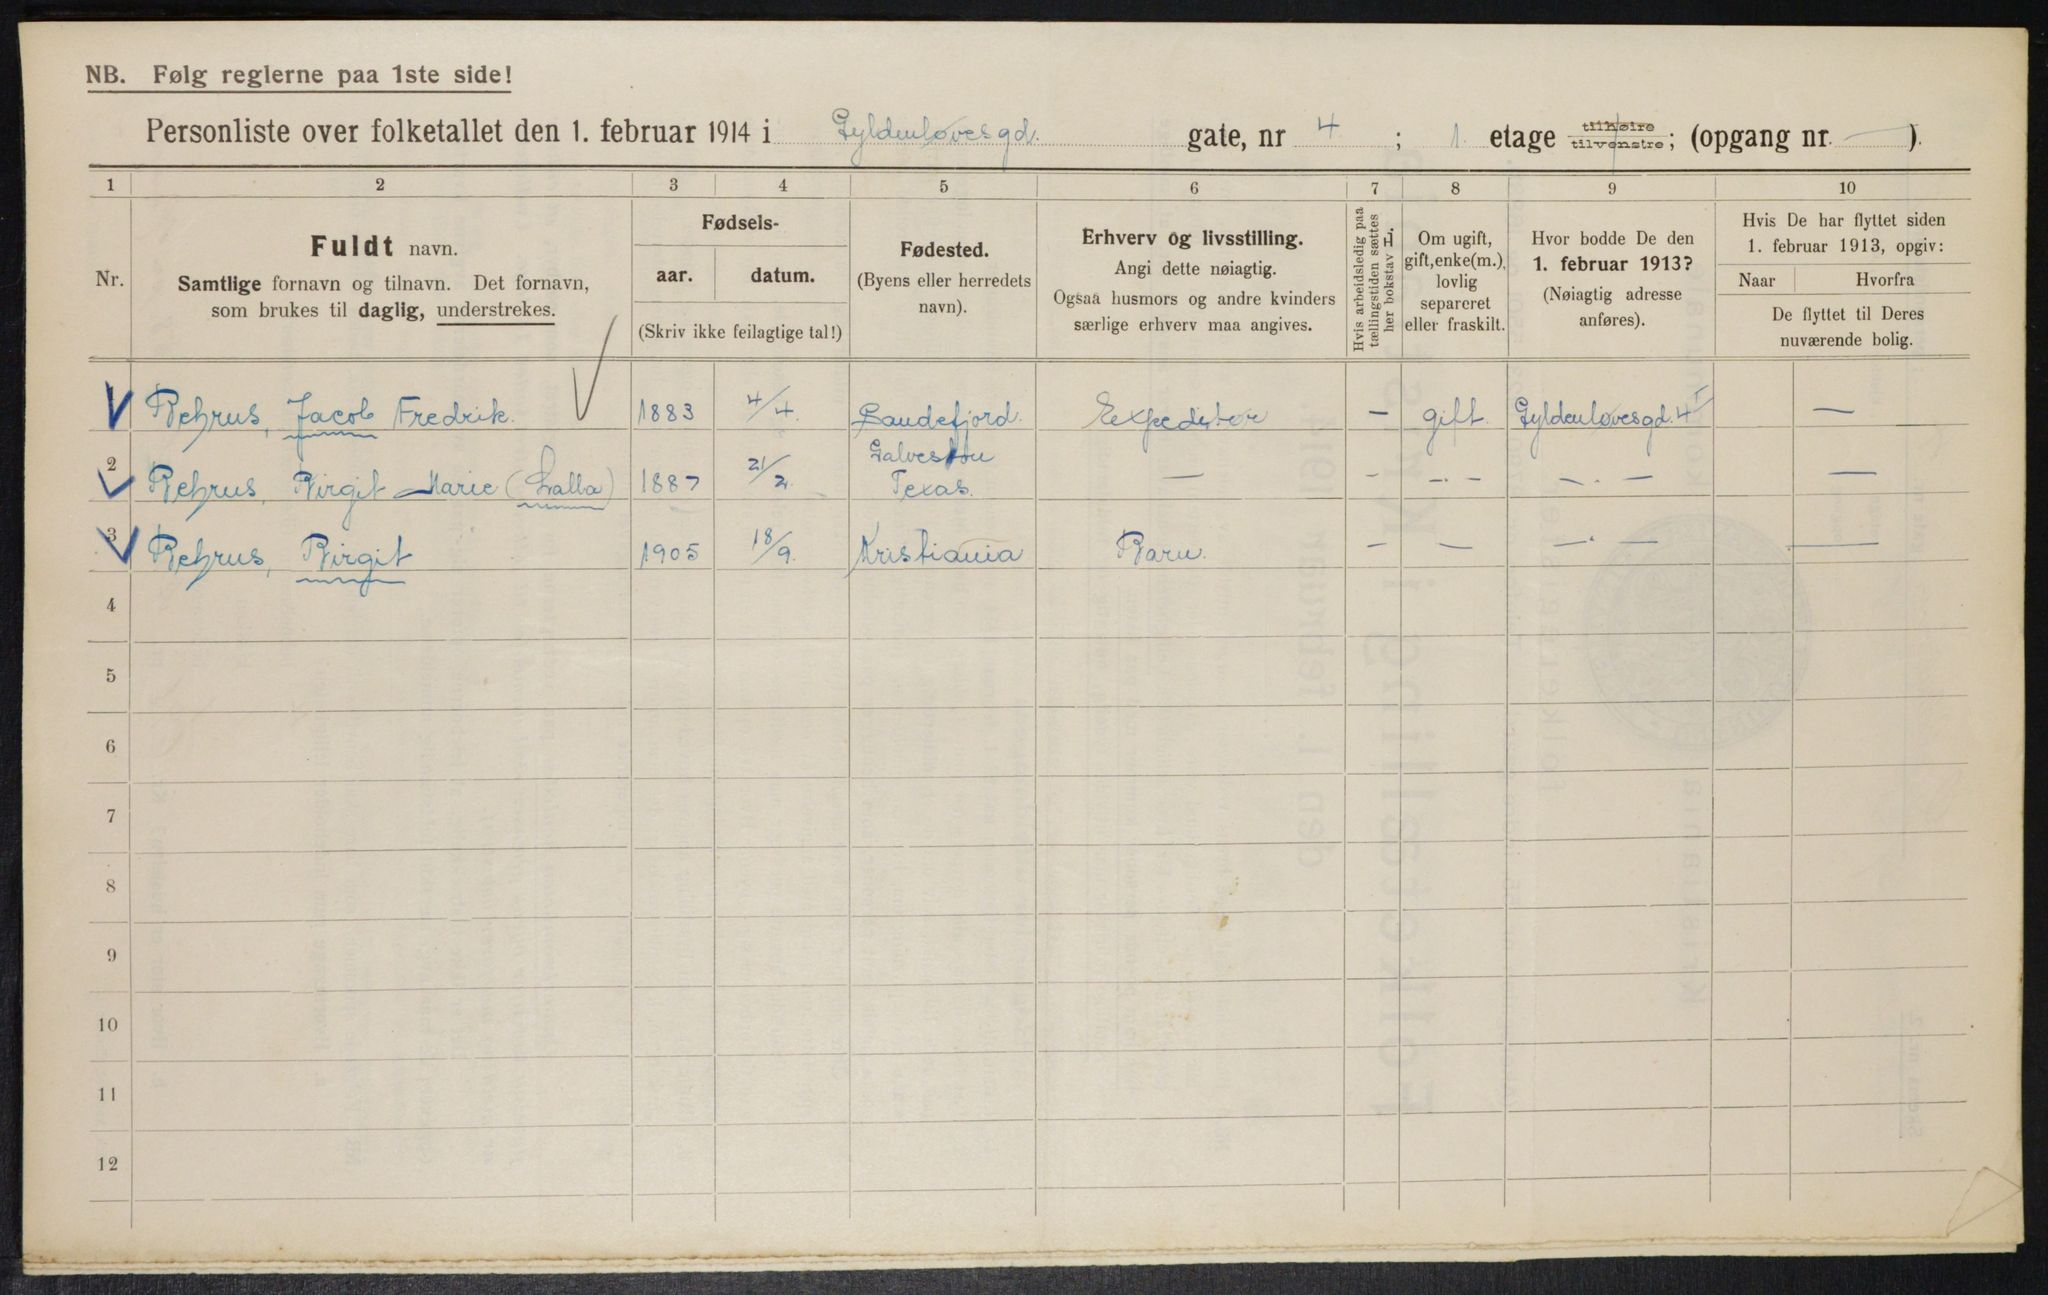 NB. Følg reglerne paa 1ste side!
Personliste over folketallet den 1. februar 1914 i Gyldenløvesgd. gate, nr 4 ; 1. etage tilhøire tilvenstre; (opgang nr. — ).
1 2 3 4 5 6 7 8 9 10
Nr.
Fuldt navn.
Samtlige fornavn og tilnavn. Det fornavn,
som brukes til daglig, understrekes.
Fødsels-
aar. datum.
(Skriv ikke feilagtige tal!)
Fødested.
(Byens eller herredets
navn).
Erhverv og livsstilling.
Angi dette nøiagtig.
Ogsaa husmors og andre kvinders
særlige erhverv maa angives.
Hvis arbeidsledig paa
tællingstiden sættes
her bokstav L.
Om ugift,
gift, enke(m.),
lovlig
separeret
eller fraskilt.
Hvor bodde De den
1. februar 1913?
(Nøiagtig adresse
anføres).
Hvis De har flyttet siden
1. februar 1913, opgiv:
Naar Hvorfra
De flyttet til Deres
nuværende bolig.
Behrus, Jacob Fredrik. 1883 4/4. Sandefjord. Expeditør — gift. Gyldenløvesgd. 4 I —
2 Behrus, Birgit Marie (Lalla) 1887 21/2. Galveston Texas. — — —.— —.— —
3 Behrus, Birgit 1905 18/9. Kristiania Barn. — — —.— —
4
5
6
7
8
9
10
11
12